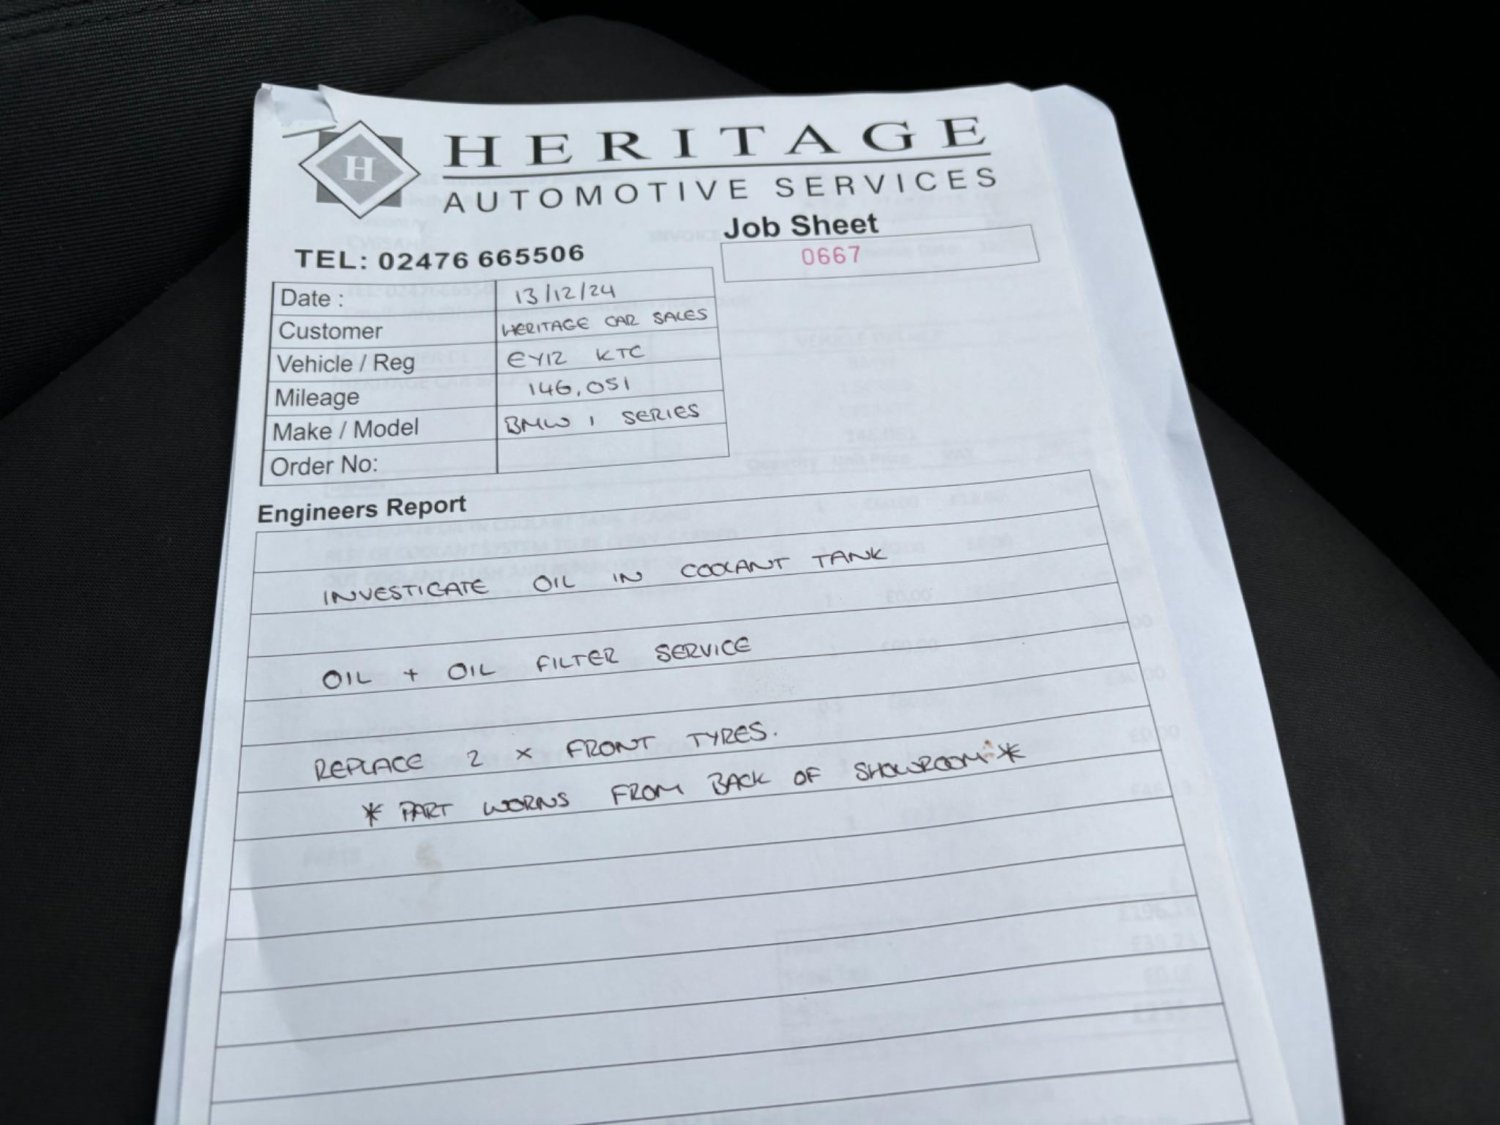 H HERITAGE
AUTOMOTIVE SERVICES
Job Sheet
TEL: 02476 665506
0667
Date : 13/12/24
Customer HERITAGE CAR SALES
Vehicle / Reg EY12 KTC
Mileage 146,051
Make / Model BMW 1 SERIES
Order No:
Engineers Report
INVESTIGATE OIL IN COOLANT TANK
OIL + OIL FILTER SERVICE
REPLACE 2 x FRONT TYRES.
* PART WORNS FROM BACK OF SHOWROOM *